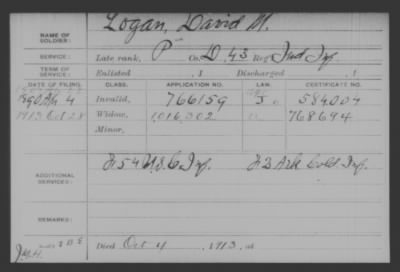 NAME OF SOLDIER: Logan, David M.
SERVICE: Late rank, P Co. D, 43 Reg't Ind Inf.
TERM OF SERVICE: Enlisted , 1 Discharged , 1
DATE OF FILING. CLASS. APPLICATION NO. LAW. CERTIFICATE NO.
1890 4 Invalid, 766159 J 584007
1913 Oct 28 Widow, 1,016,302 768694
Minor,
ADDITIONAL SERVICES: F 54 U.S.C. Inf. F 2 Ark Cold Inf.
REMARKS:
Died Oct 4 , 1913, at